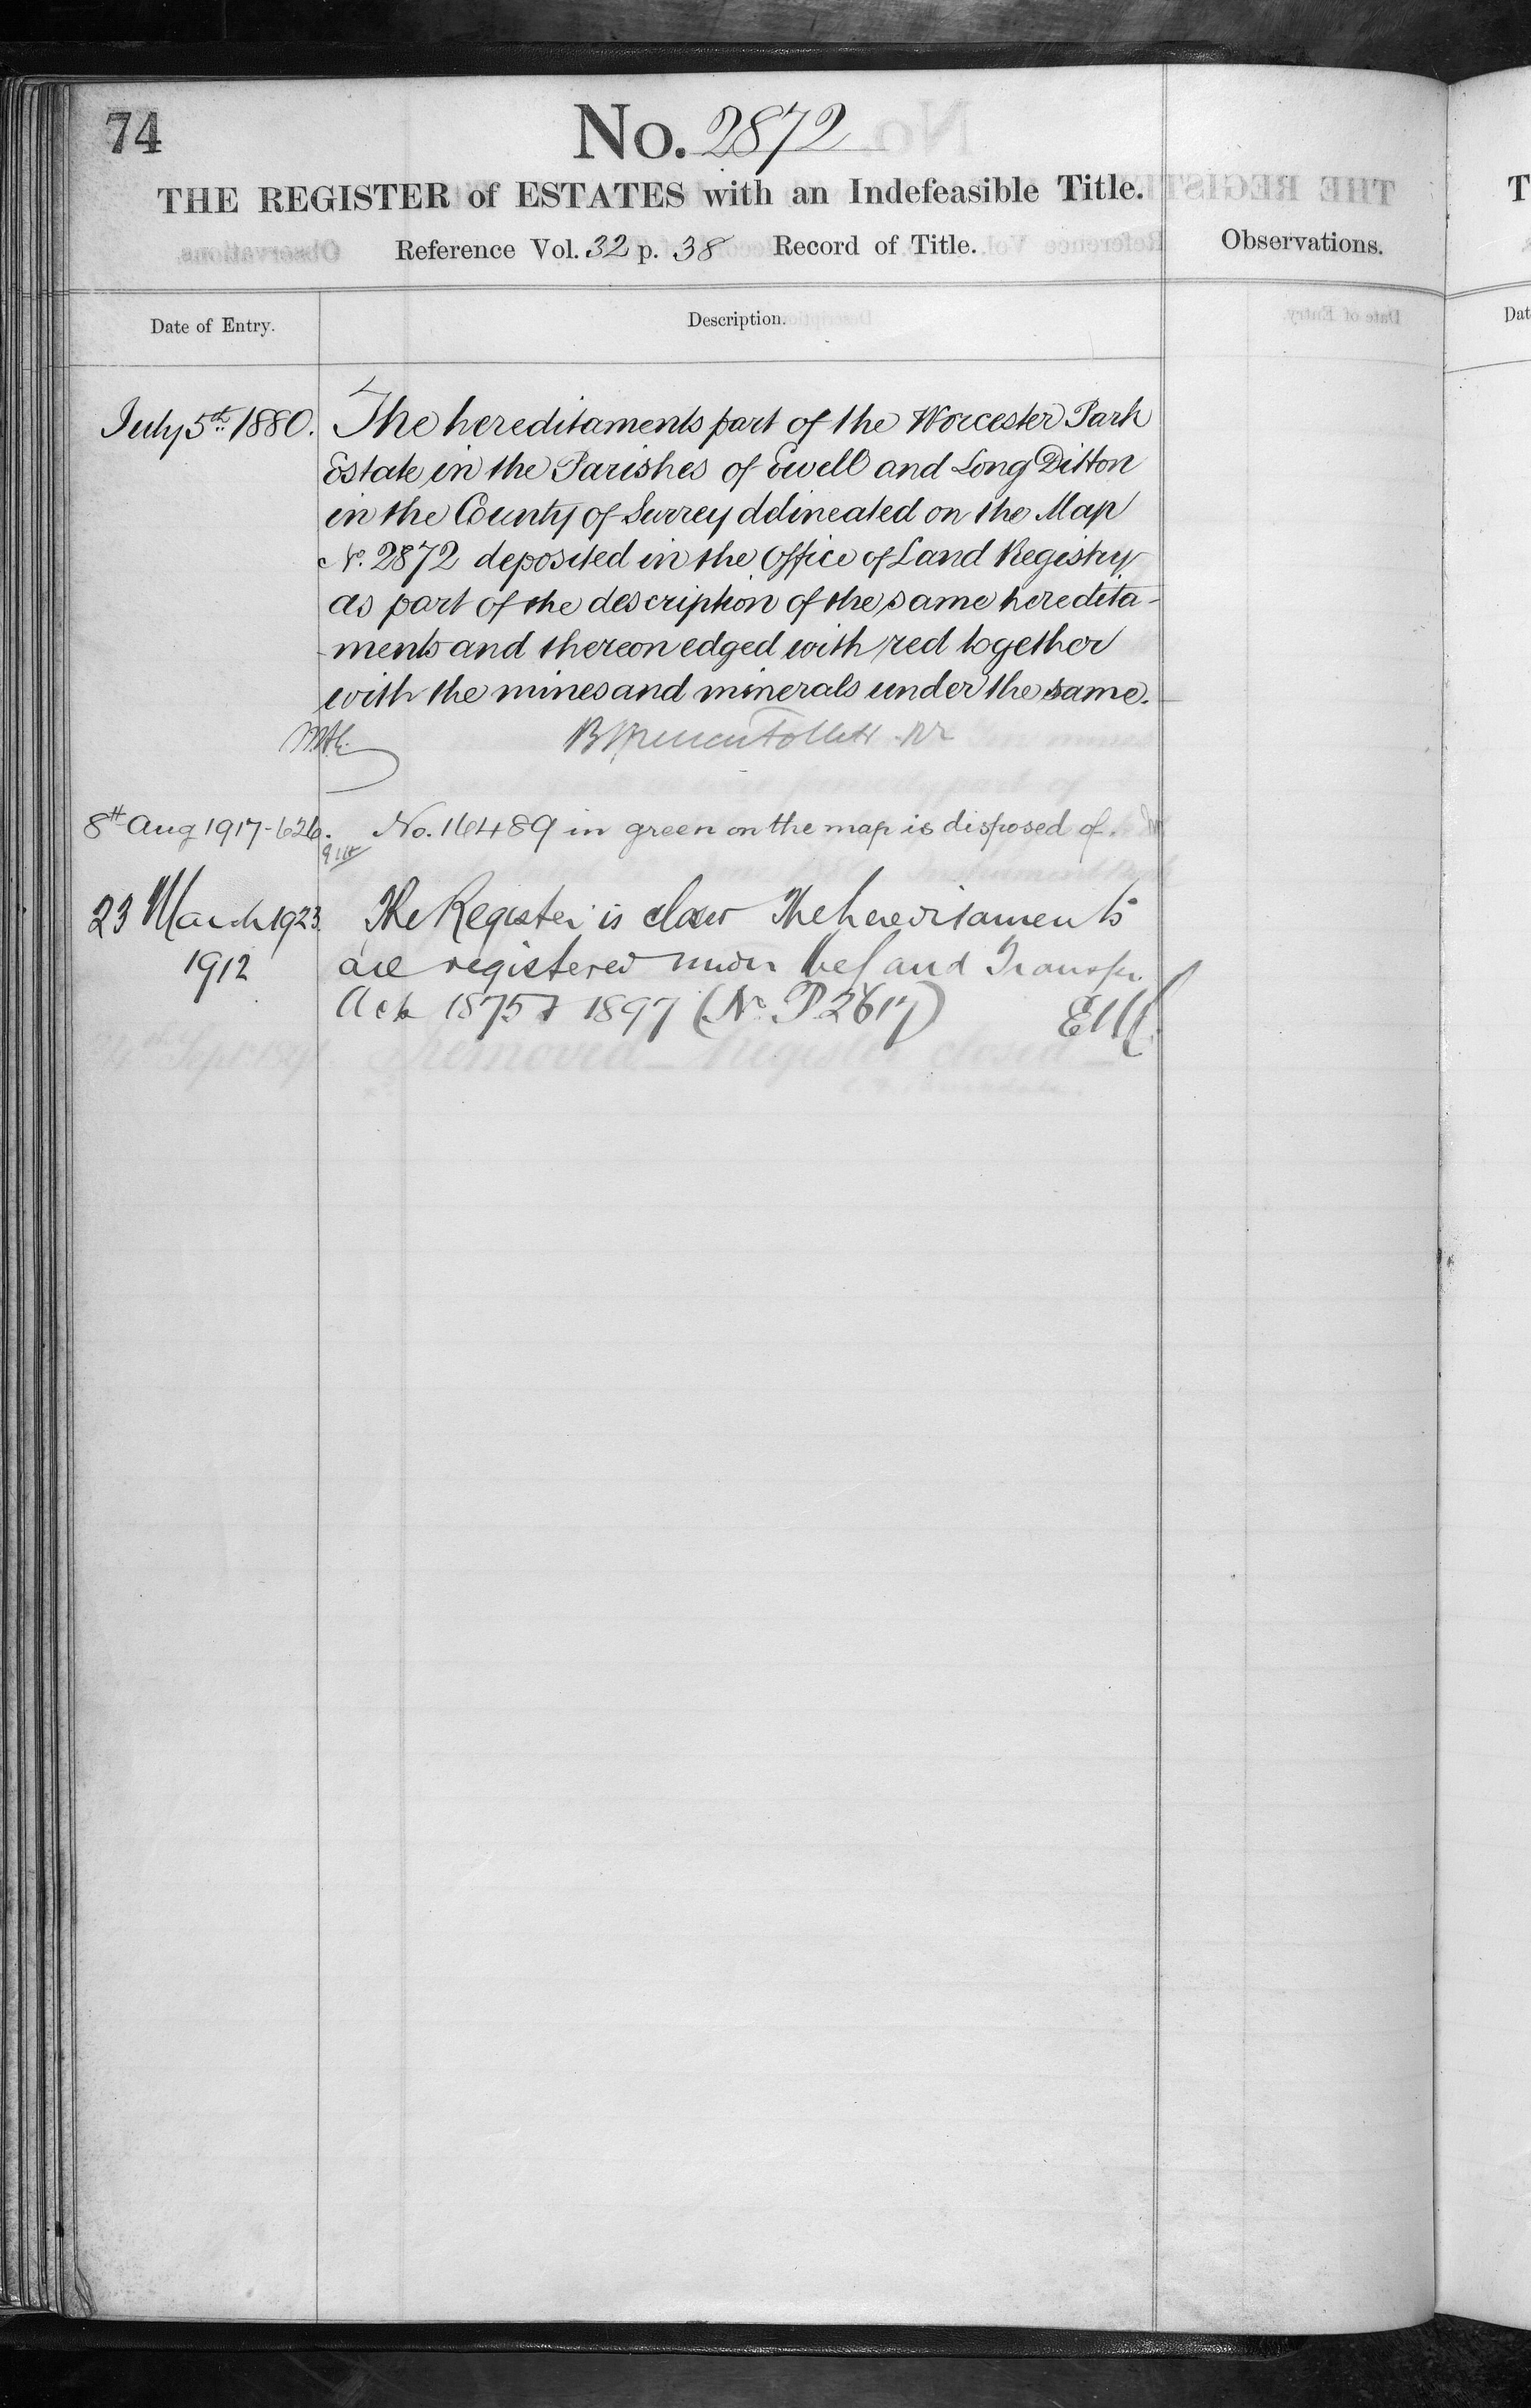 74
No. 2872
THE REGISTER of ESTATES with an Indefeasible Title.
Reference Vol. 32 p. 38 Record of Title.
Observations.
Date of Entry.
Description.
July 5th 1880. The hereditaments part of the Worcester Park
Estate in the Parishes of Ewell and Long Ditton
in the County of Surrey delineated on the Map
No. 2872 deposited in the Office of Land Registry
as part of the description of the same heredita-
-ments and thereon edged with red together
with the mines and minerals under the same.
8th Aug 1917-626. No. 16489 in green on the map is disposed of.
23 March 1923. The Register is closed The hereditaments
1912 are registered under and Transfer
Acts 1875 & 1897 (No P2617)